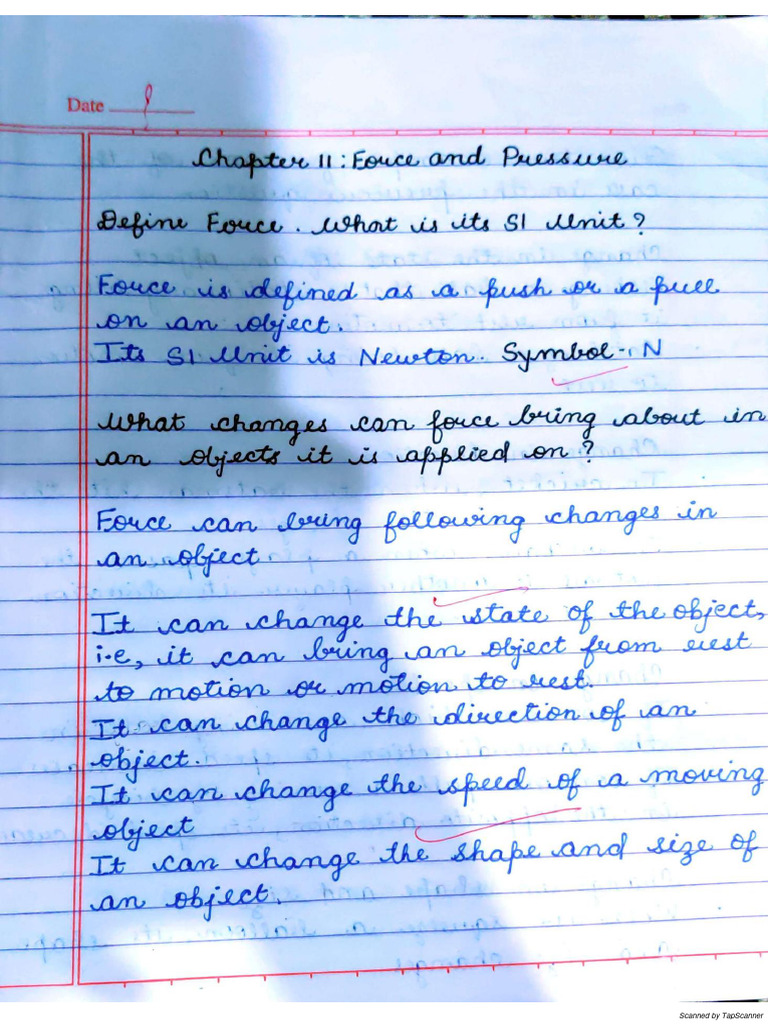 Date
Chapter 11: Force and Pressure
Define Force. What is its SI Unit?
Force is defined as a push or a pull
on an object.
Its SI Unit is Newton. Symbol - N
What changes can force bring about in
an objects it is applied on?
Force can bring following changes in
an object.
It can change the state of the object,
i.e, it can bring an object from rest
to motion or motion to rest.
It can change the direction of an
object.
It can change the speed of a moving
object
It can change the shape and size of
an object.
Scanned by TapScanner